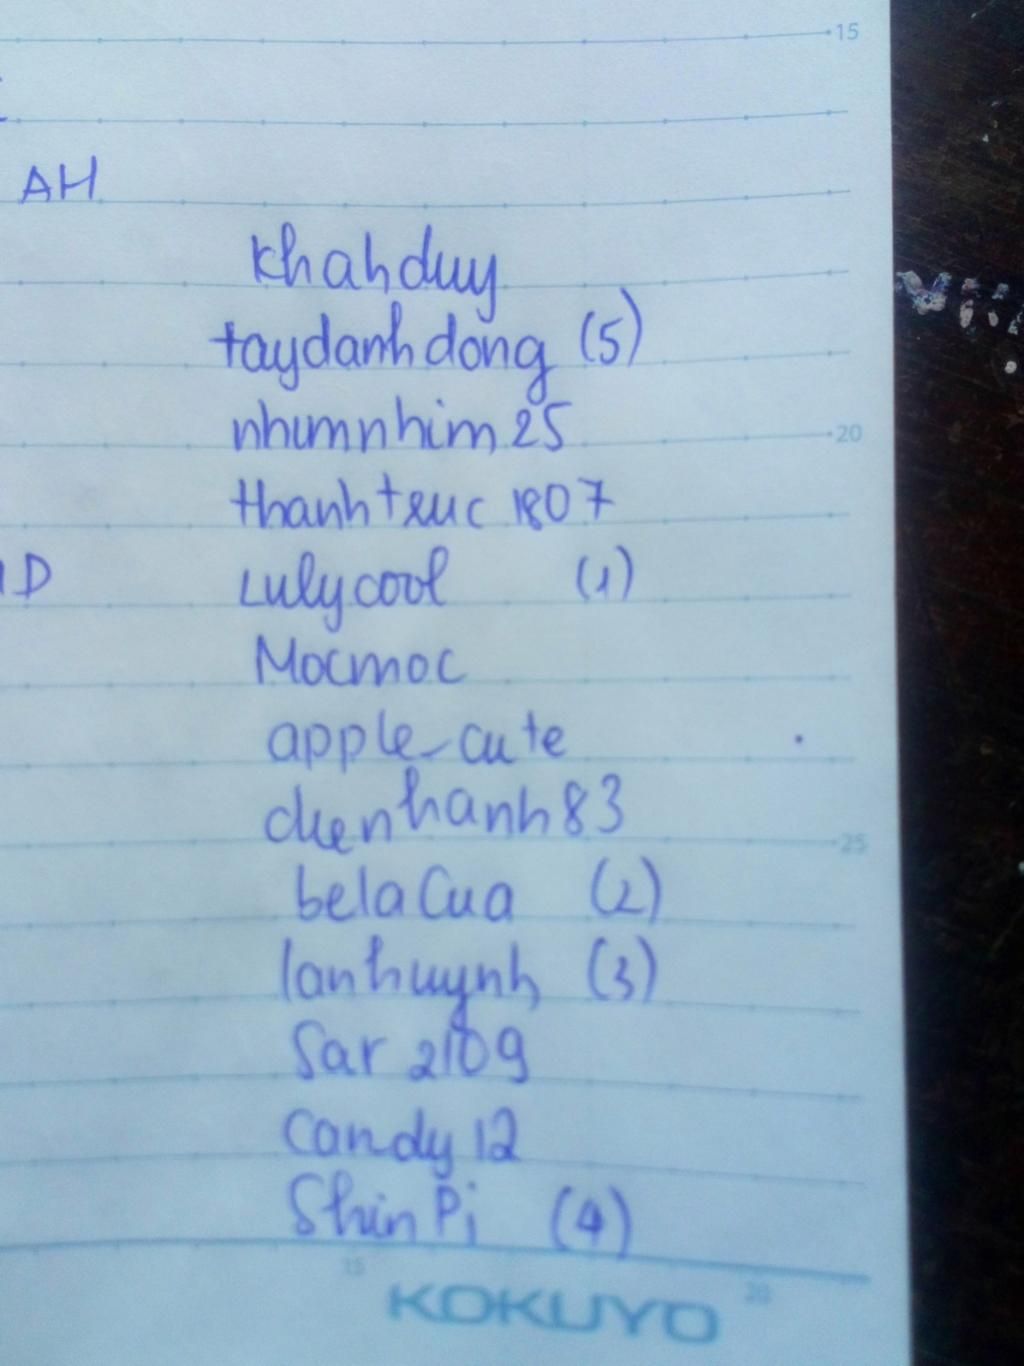 15
AH
khahduy
taydanhdong (5)
nhumnhim 25
20
thanhtruc 1807
D
Lulycool (1)
Mocmoc
apple_cute
dienhanh83
25
belaCua (2)
lanhuynh (3)
Sar 2109
Candy 12
ShinPi (4)
15
20
KOKUYO